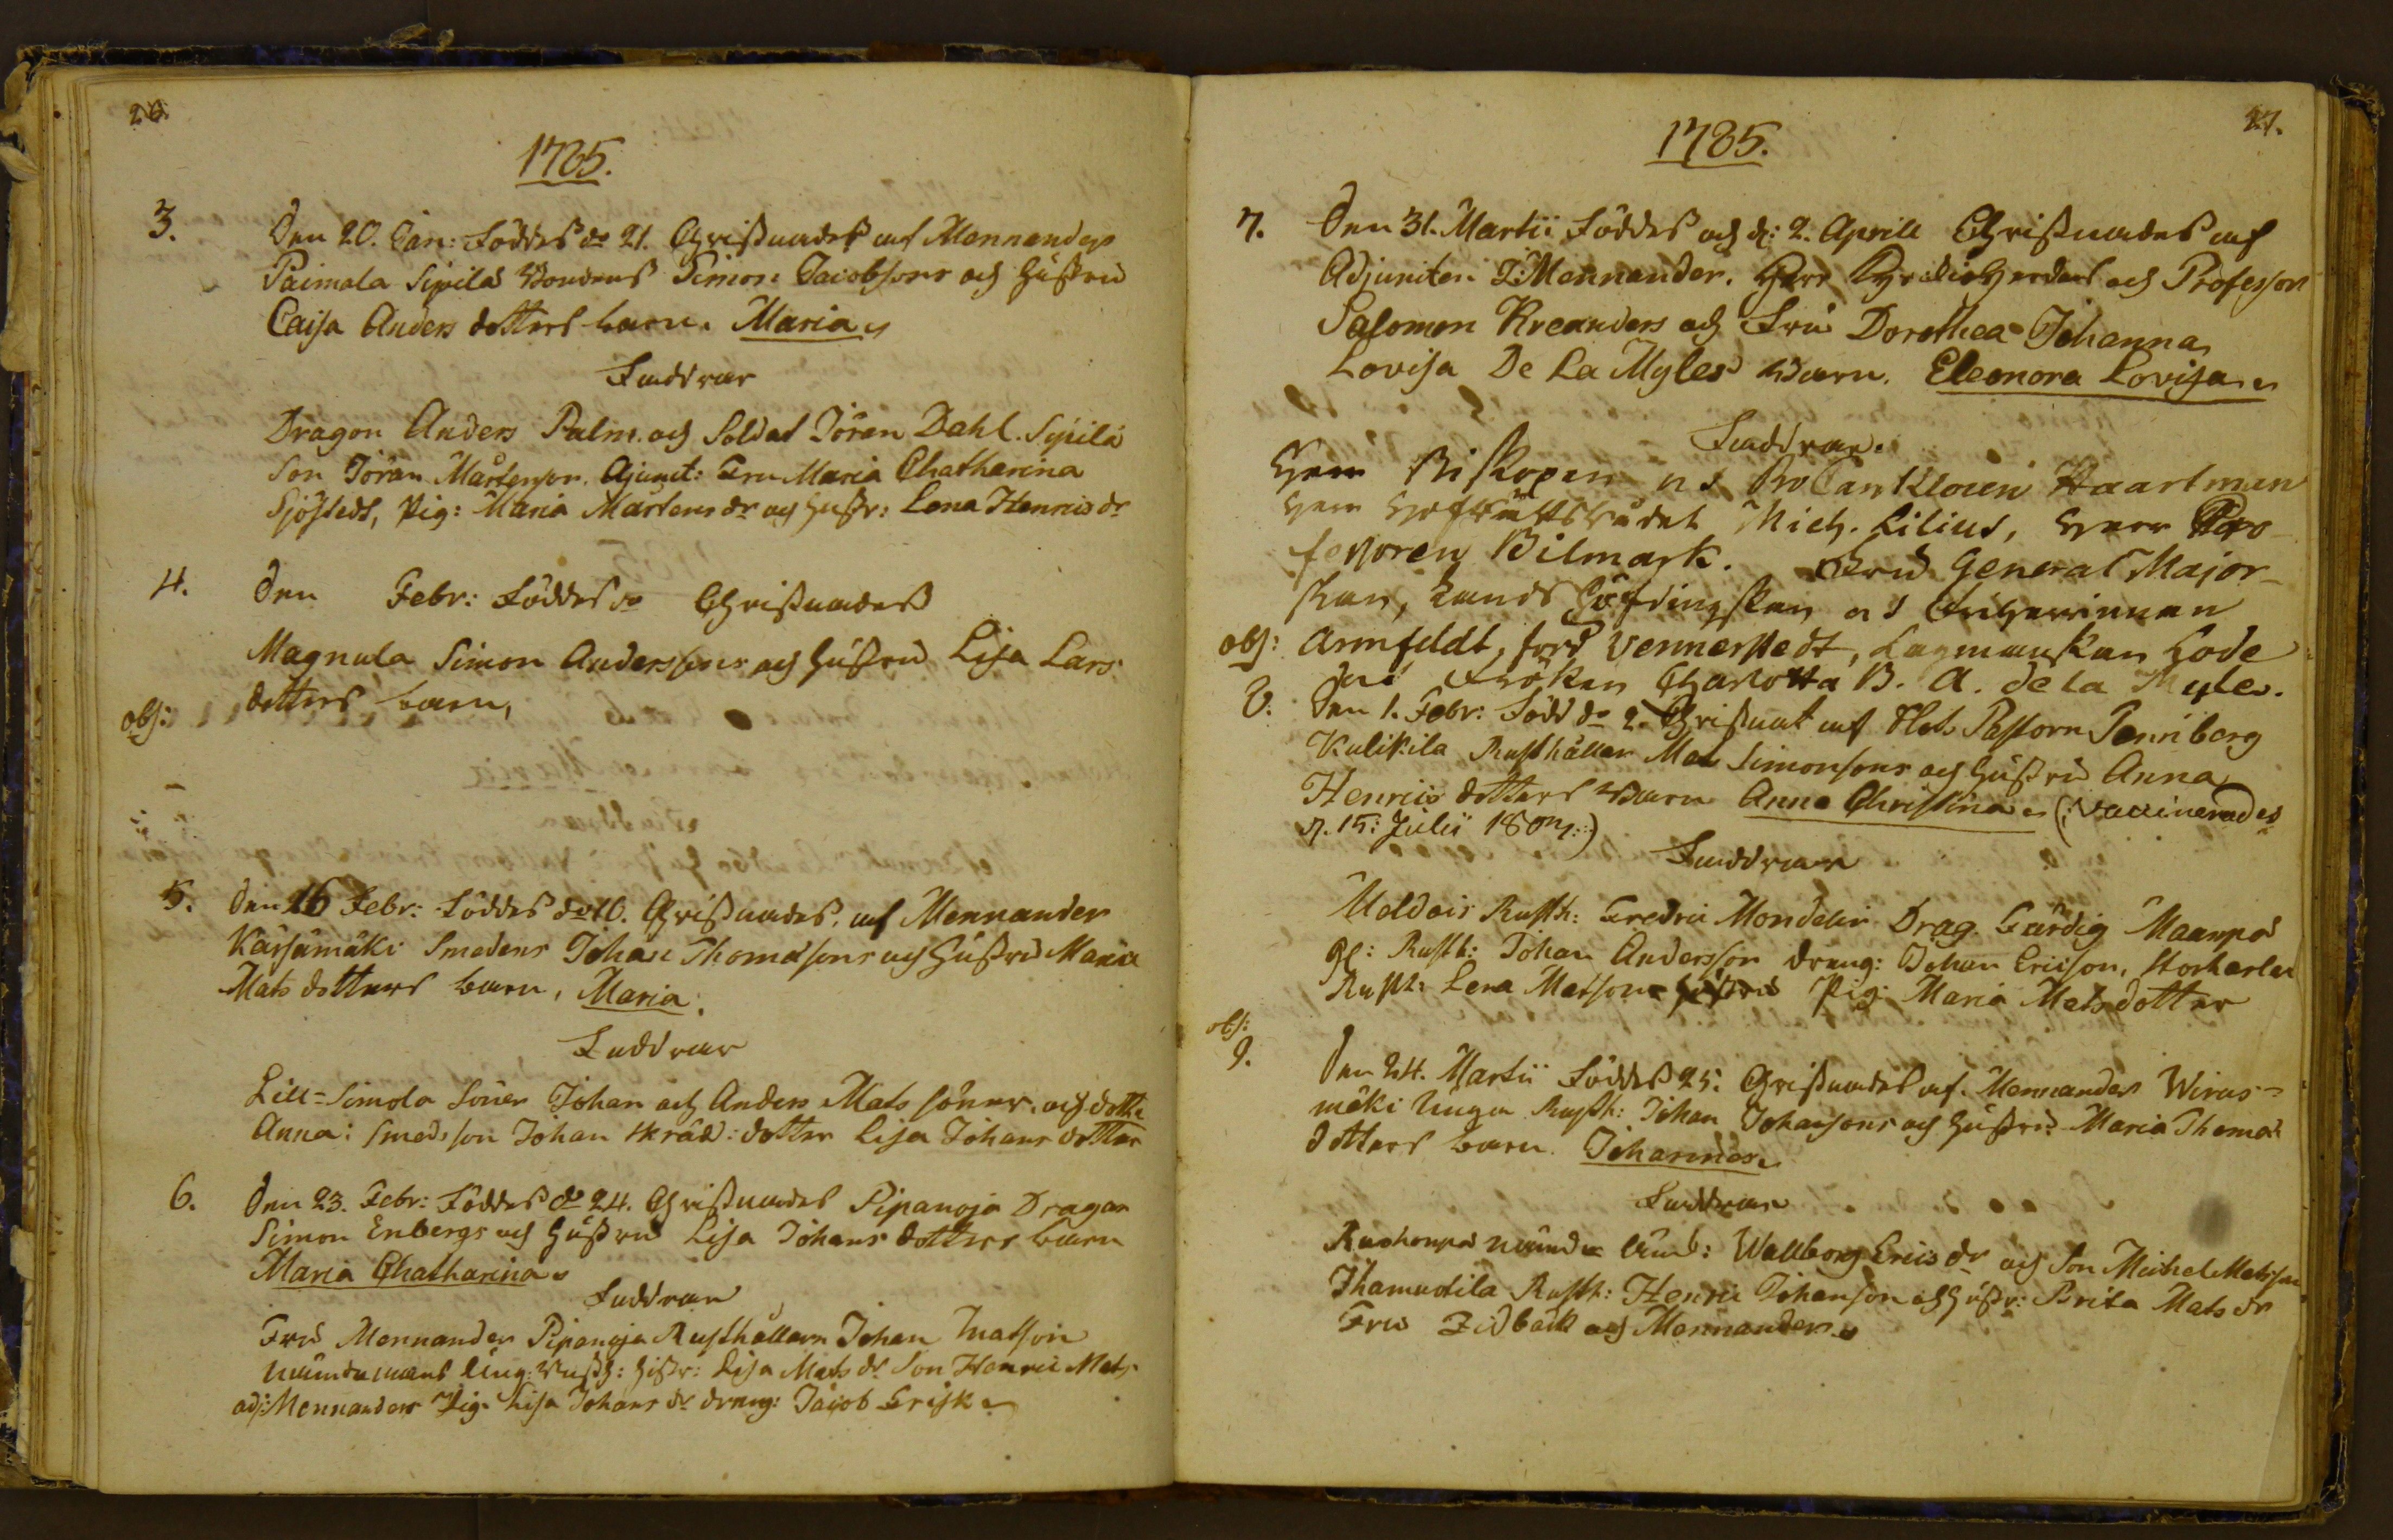 26.
1785.
3. Den 20. Jan: Föddes do 21. Christnades af Mennander
Paimala Sipilä Bondens Simon Jacobsons och Hustru
Caisa Anders dotters barn. Maria
Faddrar
Dragon Anders Palm. och Soldat Jöran Dahl. Sipilä
Son Jöran Mårtenson. Ajunct: Fru Maria Chatharina
Sjöstedt, Pig: Maria Mårtens dr och Hustr: Lena Henrics dr
4. Den Febr: Föddes do Christnades
Magnula Simon Anderssons och Hustru Lisa Lars
dotters barn,
obs:
5. Den 16 Febr: Föddes do 18. Christnades. af Mennander
Kärsämäki Smedens Johan Thomasons och Hustru Maria
Mats dotters barn, Maria.
Faddrar
Lill=Simola Söner Johan och Anders Mats söner. och dott:
Anna: Smeds son Johan skräd: dotter Lisa Johans dotter
6. Den 23. Febr: Föddes do 24. Christnades Pipanoja Dragon
Simon Enbergs och Hustru Lisa Johans dotters barn
Maria Chatharina
Faddrar
Fru Mennander Pipanoja Rusthållarn Johan Matson
Nämndemans Rusth: Hustr: Lisa Mats dr Son Henric Mats
adj: Mennanders Pig. Lisa Johans dr dräng: Jacob Frisk
27.
1785.
7. Den 31. Martii Föddes och d: 2. Aprill Christnades af
Adjuncten J: Mennander. Herr och Professor
Salomon Kreanders och Fru Dorothea Johanna
Lovisa De La Myles Barn. Eleonora Lovisa
Faddrar.
Herr Biskopen och ProCancleren Haartman
Herr Hofrättsrådet Mich. Lilius, Herr Pro-
fessoren Bilmark. Fru General Major-
skan, Landshöfdingskan och Friherrinnan
obs: Armfeldt, född Vennerstedt, Lagmanskan Gode
och Fröken Charlotta B. A. de la Myle.
8. Den 1. Febr: Född do 2. Christnat af Pastorn Pennberg
Kulikila Rusthållar Mats Simonsons och Hustru Anna
Henrics dotters Barn Anna Christina (: Vaccinerades
d. 15: Julii 1807:)
Faddrar
Moldois Rusth: Fredric Mondelin Drag. Färdig Maanpä
gl: Rusth: Johan Andersson dräng: Johan Ericson, Storkarla
Rusth: Lena Matsons Hustru Pig: Maria Matsdotter
obs:
9. Den 24. Martii Föddes 25. Christnades af. Mennander Wiras=
mäki Unga Rusth: Johan Johansons och Hustru Maria Thomas
dotters barn. Johannes
Faddrar
Ruohonpä Nämnde Wallborg Erics dr och Son Michel Matsson
Ihamutila Rusth: Henric Johanson och Hustr: Brita Mats dr
Fru Zidbäck och Mennander